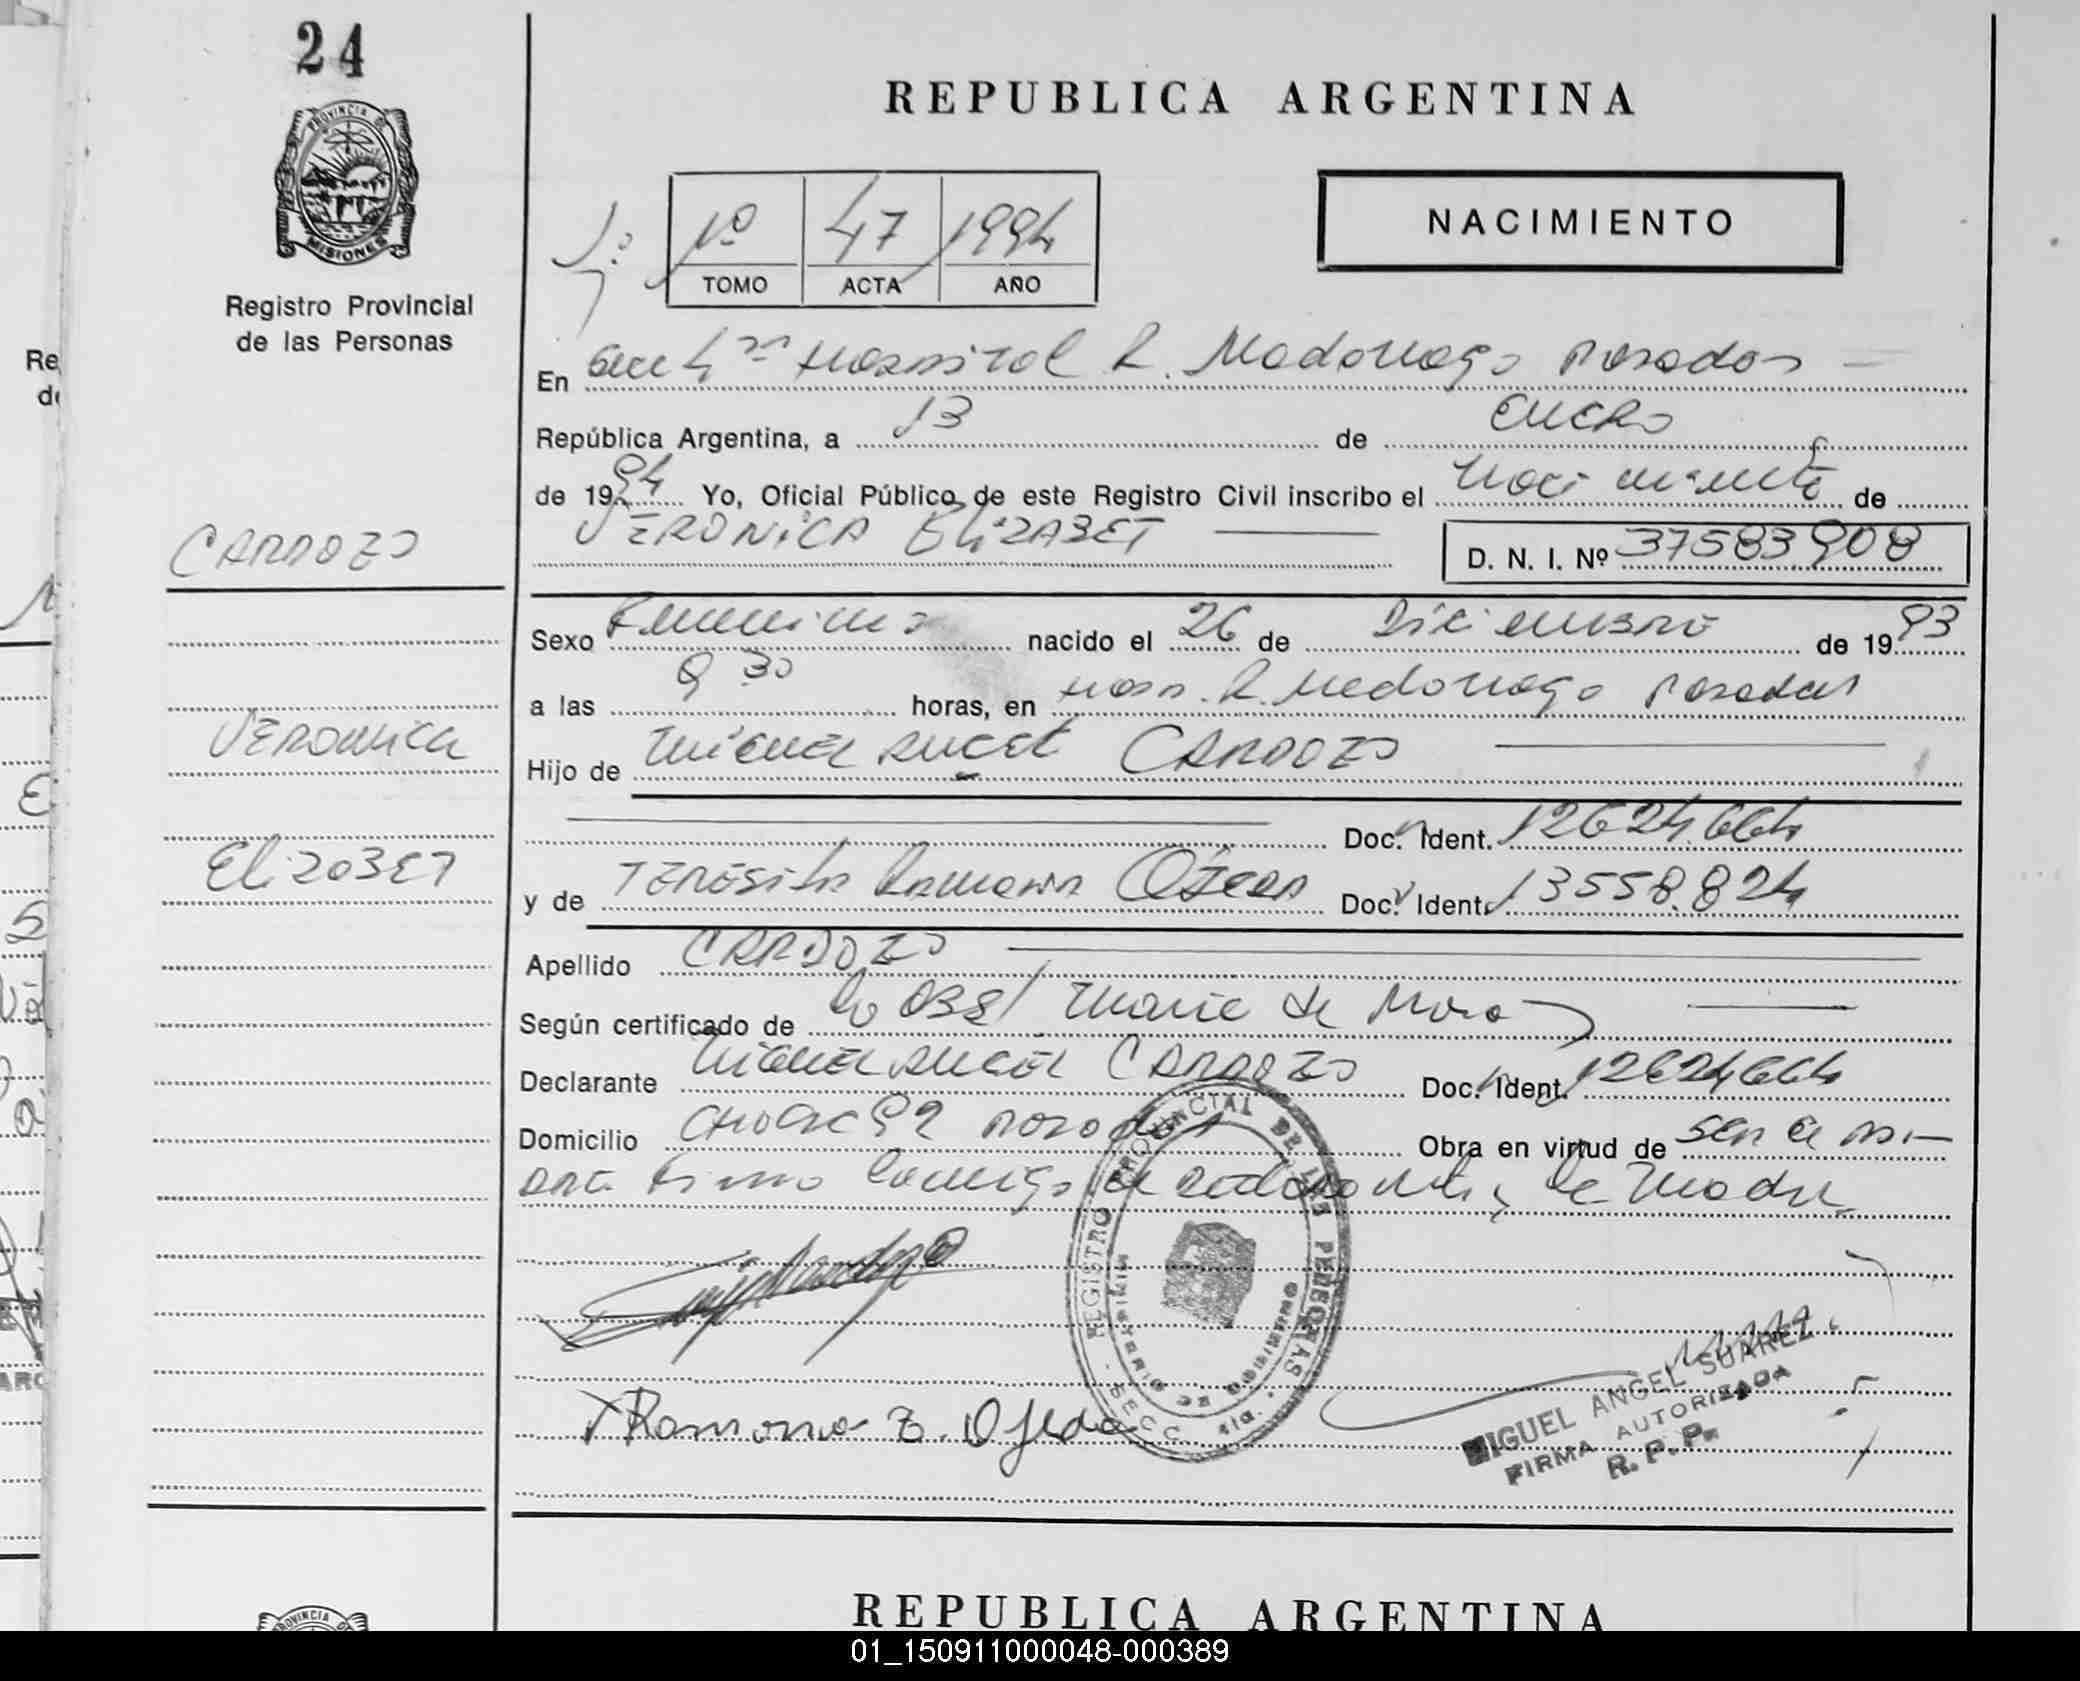 24
PROVINCIA DE
MISIONES
Registro Provincial
de las Personas
REPUBLICA ARGENTINA
1º 47 1994
TOMO ACTA AÑO
NACIMIENTO
En Secc 4ta Hospital R. Madariaga Posadas
República Argentina, a 13 de Enero
de 1994 Yo, Oficial Público de este Registro Civil inscribo el Nacimiento de
VERONICA ELIZABET D. N. I. Nº 37583.908
CARDOZO
VERONICA
ELIZABET
Sexo Femenino nacido el 26 de Diciembre de 1993
a las 9 30 horas, en Hosp. R. Madariaga Posadas
Hijo de Miguel Angel CARDOZO
Doc. Ident. 12624.664
y de TERESITA Ramona Ojeda Doc. Ident. 13558.824
Apellido CARDOZO
Según certificado de la Obst Marie de Mora
Declarante Miguel Angel CARDOZO Doc. Ident. 12624664
Domicilio 92 Posadas Obra en virtud de ser el
firma conmigo el declarante y la Madre
REGISTRO PROVINCIAL DE LAS PERSONAS
MINISTERIO DE GOBIERNO
SECC. 4ta.
Ramona T. Ojeda
MIGUEL ANGEL SUAREZ
FIRMA AUTORIZADA
R. P. P.
REPUBLICA ARGENTINA
PROVINCIA
01_150911000048-000389